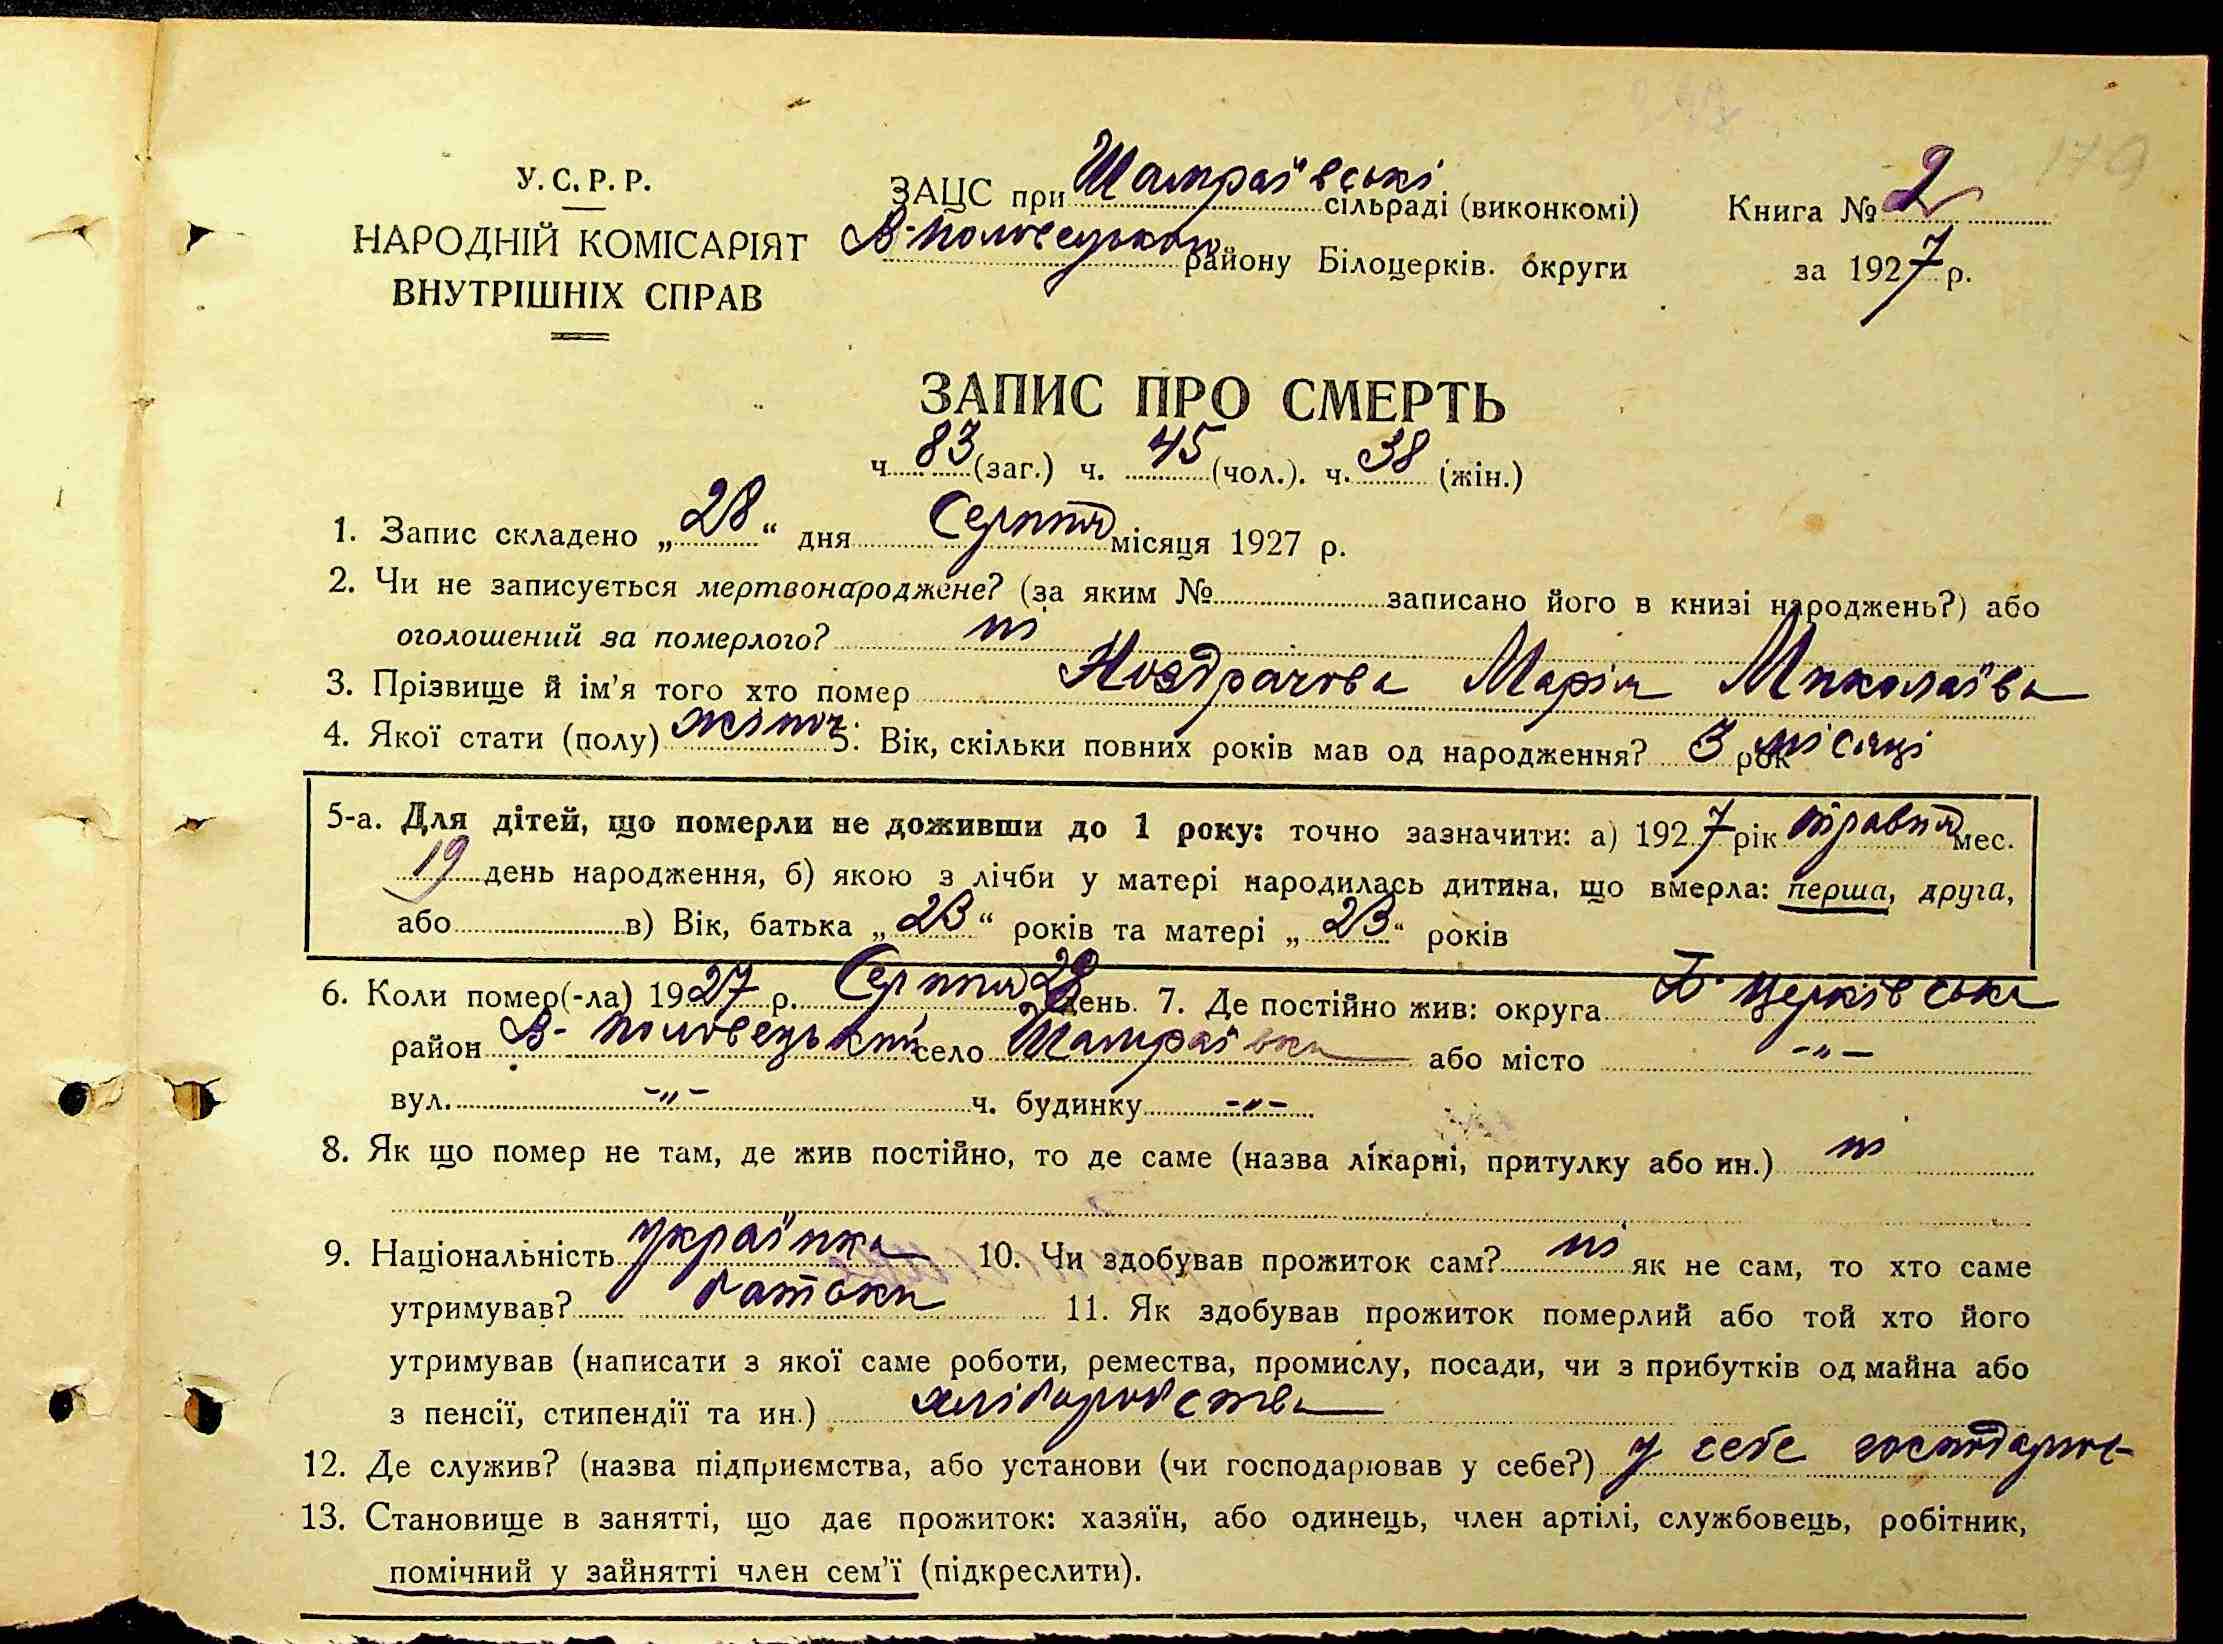 179
У. С. Р. Р.
НАРОДНІЙ КОМІСАРІЯТ
ВНУТРІШНІХ СПРАВ
ЗАЦС при Шамраївські сільраді (виконкомі)
В-Половецьком району Білоцерків. округи
Книга № 2
за 1927 р.
ЗАПИС ПРО СМЕРТЬ
ч 83 (заг.) ч. 45 (чол.). ч. 38 (жін.)
1. Запис складено „28“ дня Серпня місяця 1927 р.
2. Чи не записується мертвонароджене? (за яким № записано його в книзі народжень?) або
оголошений за померлого? ні
3. Прізвище й ім’я того хто помер Ноздрачова Марія Миколаєва
4. Якої стати (полу) жіноч 5: Вік, скільки повних років мав од народження? 3 рок місяці
5-а. Для дітей, що померли не доживши до 1 року: точно зазначити: а) 1927 рік травня мес.
19 день народження, б) якою з лічби у матері народилась дитина, що вмерла: перша, друга,
або в) Вік, батька „23“ років та матері „23“ років
6. Коли помер(-ла) 1927 р. Серпня 28 день. 7. Де постійно жив: округа Б-Церківська
район В-Половецький село Шамраївка або місто -„-
вул. -„- ч. будинку -„-
8. Як що помер не там, де жив постійно, то де саме (назва лікарні, притулку або ин.) ні
9. Національність українка 10. Чи здобував прожиток сам? ні як не сам, то хто саме
утримував? батьки 11. Як здобував прожиток померлий або той хто його
утримував (написати з якої саме роботи, ремества, промислу, посади, чи з прибутків од майна або
з пенсії, стипендії та ин.) хліборобства
12. Де служив? (назва підприємства, або установи (чи господарював у себе?) у себе господарює
13. Становище в занятті, що дає прожиток: хазяїн, або одинець, член артілі, службовець, робітник,
помічний у зайнятті член сем’ї (підкреслити).